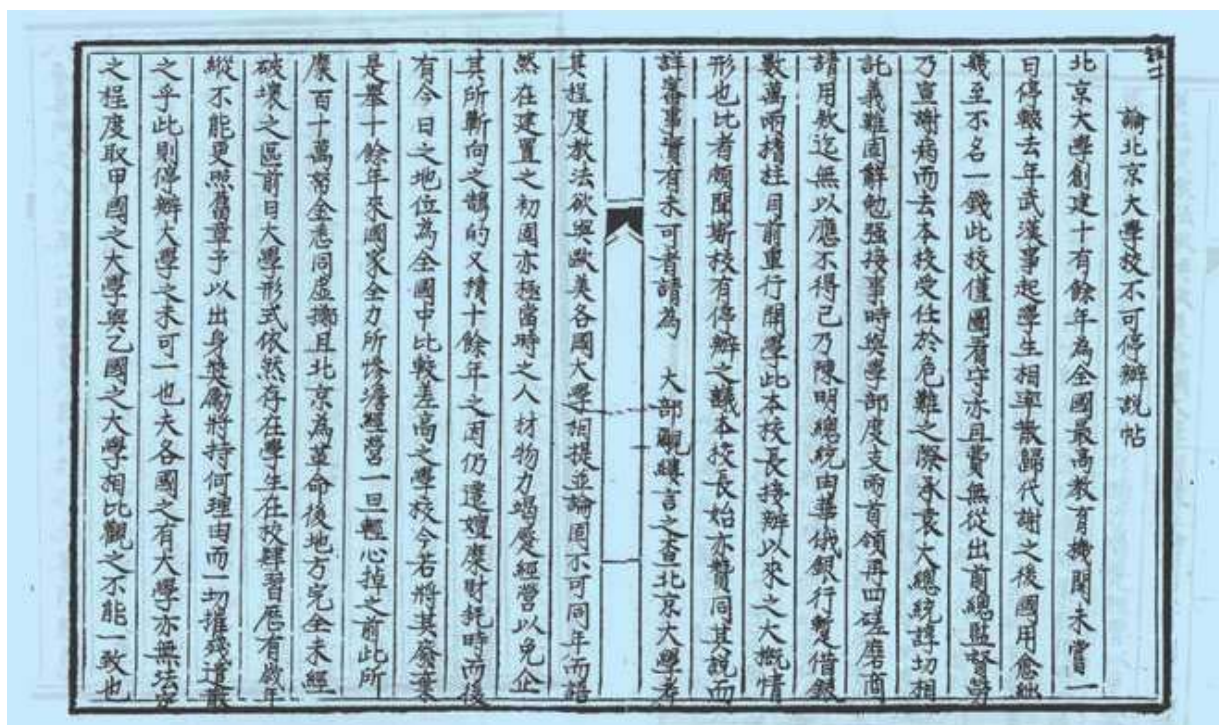 論北京大學校不可停辦說帖
北京大學創建十有餘年為全國最高教育機關未嘗一
日停輟去年武漢事起學生相率散歸代謝之後國用愈絀
幾至不名一錢此校僅圖看守亦且費無從出前總監督勞
乃宣謝病而去本校受任於危難之際承袁大總統諄切相
託義難固辭勉強接事時與學部度支兩首領再四磋磨商
請用款迄無以應不得已乃陳明總統由華俄銀行暫借銀
數萬兩榰拄目前重行開學此本校長接辦以來之大概情
形也比者頗聞斯校有停辦之議本校長始亦贊同其說而
詳審事實有未可者請為 大部覼縷言之查北京大學考
其程度教法欲與歐美各國大學相提並論固不可同年而語
然在建置之初固亦極當時之人材物力竭蹷經營以免企
其所蘄向之鵠的又積十餘年之因仍遞嬗糜財耗時而後
有今日之地位為全國中比較差高之學校今若將其廢棄
是舉十餘年來國家全力所慘澹經營一旦輕心掉之前此所
糜百十萬帑金悉同虛擲且北京為革命後地方完全未經
破壞之區前日大學形式依然存在學生在校肄習歷有歲年
縱不能更照舊章予以出身獎勵將持何理由而一切摧殘遣散
之乎此則停辦大學之未可一也夫各國之有大學亦無法定
之程度取甲國之大學與乙國之大學相比觀之不能一致也